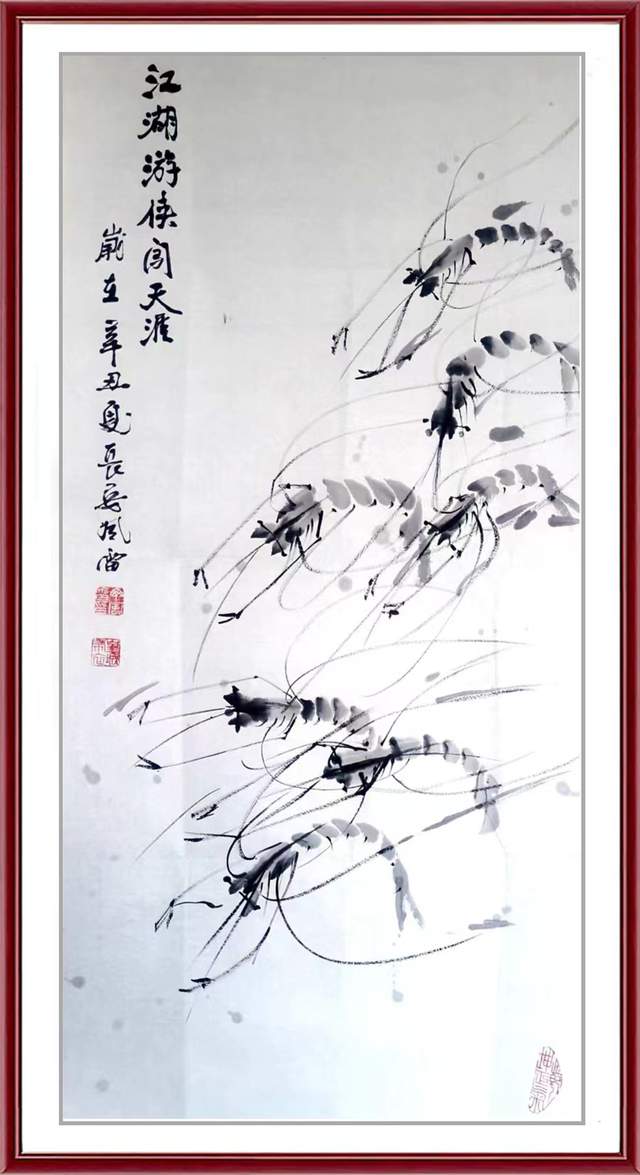 江湖游侠闯天涯
岁在辛丑夏长安风雷